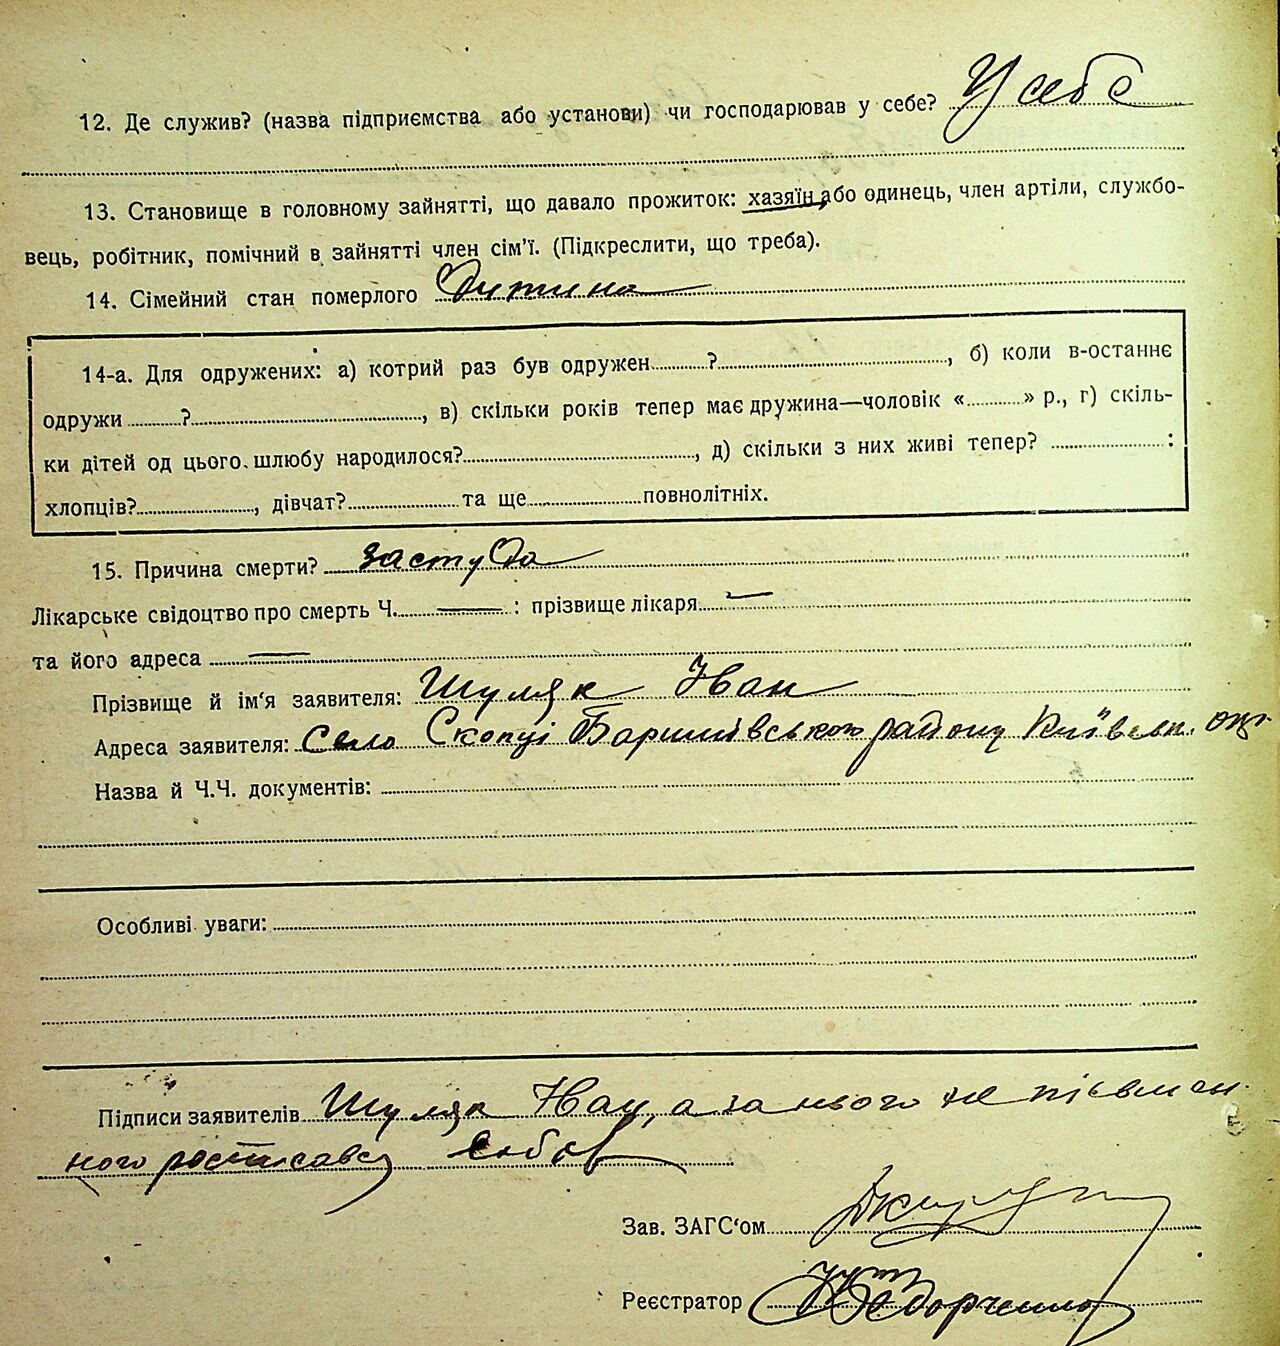 12. Де служив? (назва підприємства або установи) чи господарював у себе? У себе
13. Становище в головному зайнятті, що давало прожиток: хазяїн або одинець, член артіли, службо-
вець, робітник, помічний в зайнятті член сім'ї. (Підкреслити, що треба).
14. Сімейний стан померлого Дитина
14-а. Для одружених: а) котрий раз був одружен......?......, б) коли в-останнє
одружи......?......, в) скільки років тепер має дружина—чоловік «......» р., г) скіль-
ки дітей од цього шлюбу народилося?......, д) скільки з них живі тепер? ......:
хлопців?......, дівчат?......та ще......повнолітніх.
15. Причина смерти? застуда
Лікарське свідоцтво про смерть Ч. — : прізвище лікаря —
та його адреса —
Прізвище й ім'я заявителя: Шуляк Іван
Адреса заявителя: Село Скопці Баришівського району Київськ. окр.
Назва й Ч.Ч. документів:
Особливі уваги:
Підписи заявителів Шуляк Іван, а за нього не письмен-
ного росписався
Зав. ЗАГС'ом
Реєстратор Федорченко